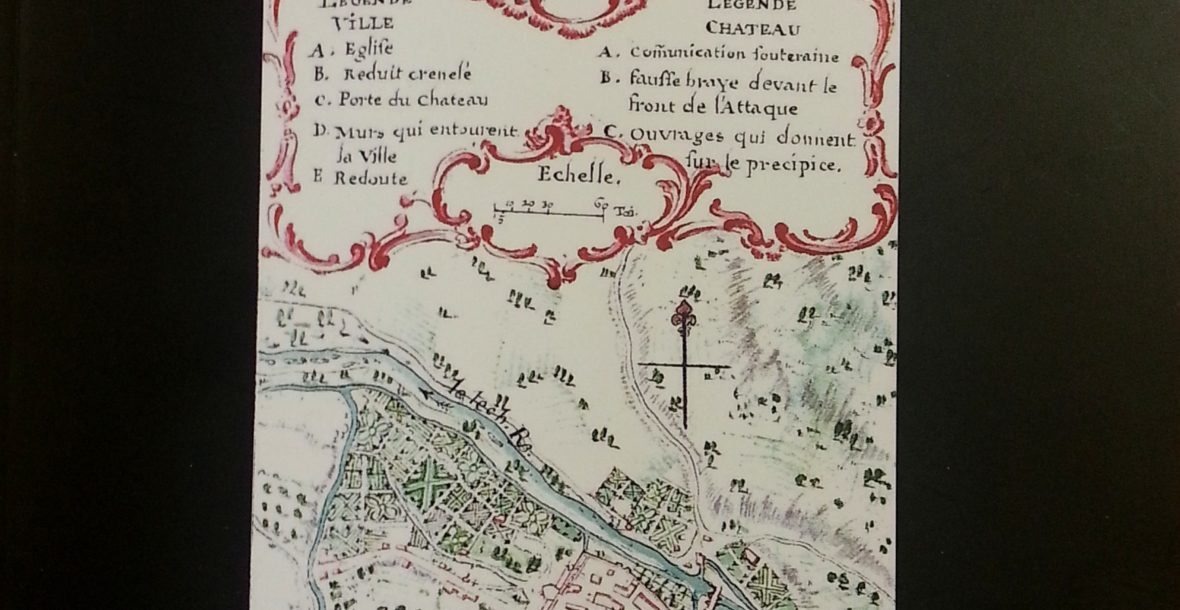 LEGENDE
VILLE
A. Eglise
B. Reduit crenelé
C. Porte du Chateau
D. Murs qui entourent
la Ville
E Redoute
LEGENDE
CHATEAU
A. Comunication souteraine
B. fausse braye devant le
front de l'Attaque
C. Ouvrages qui donnent
sur le precipice.
Echelle.
5 10 20 30 60 Toi.
le lech. R.